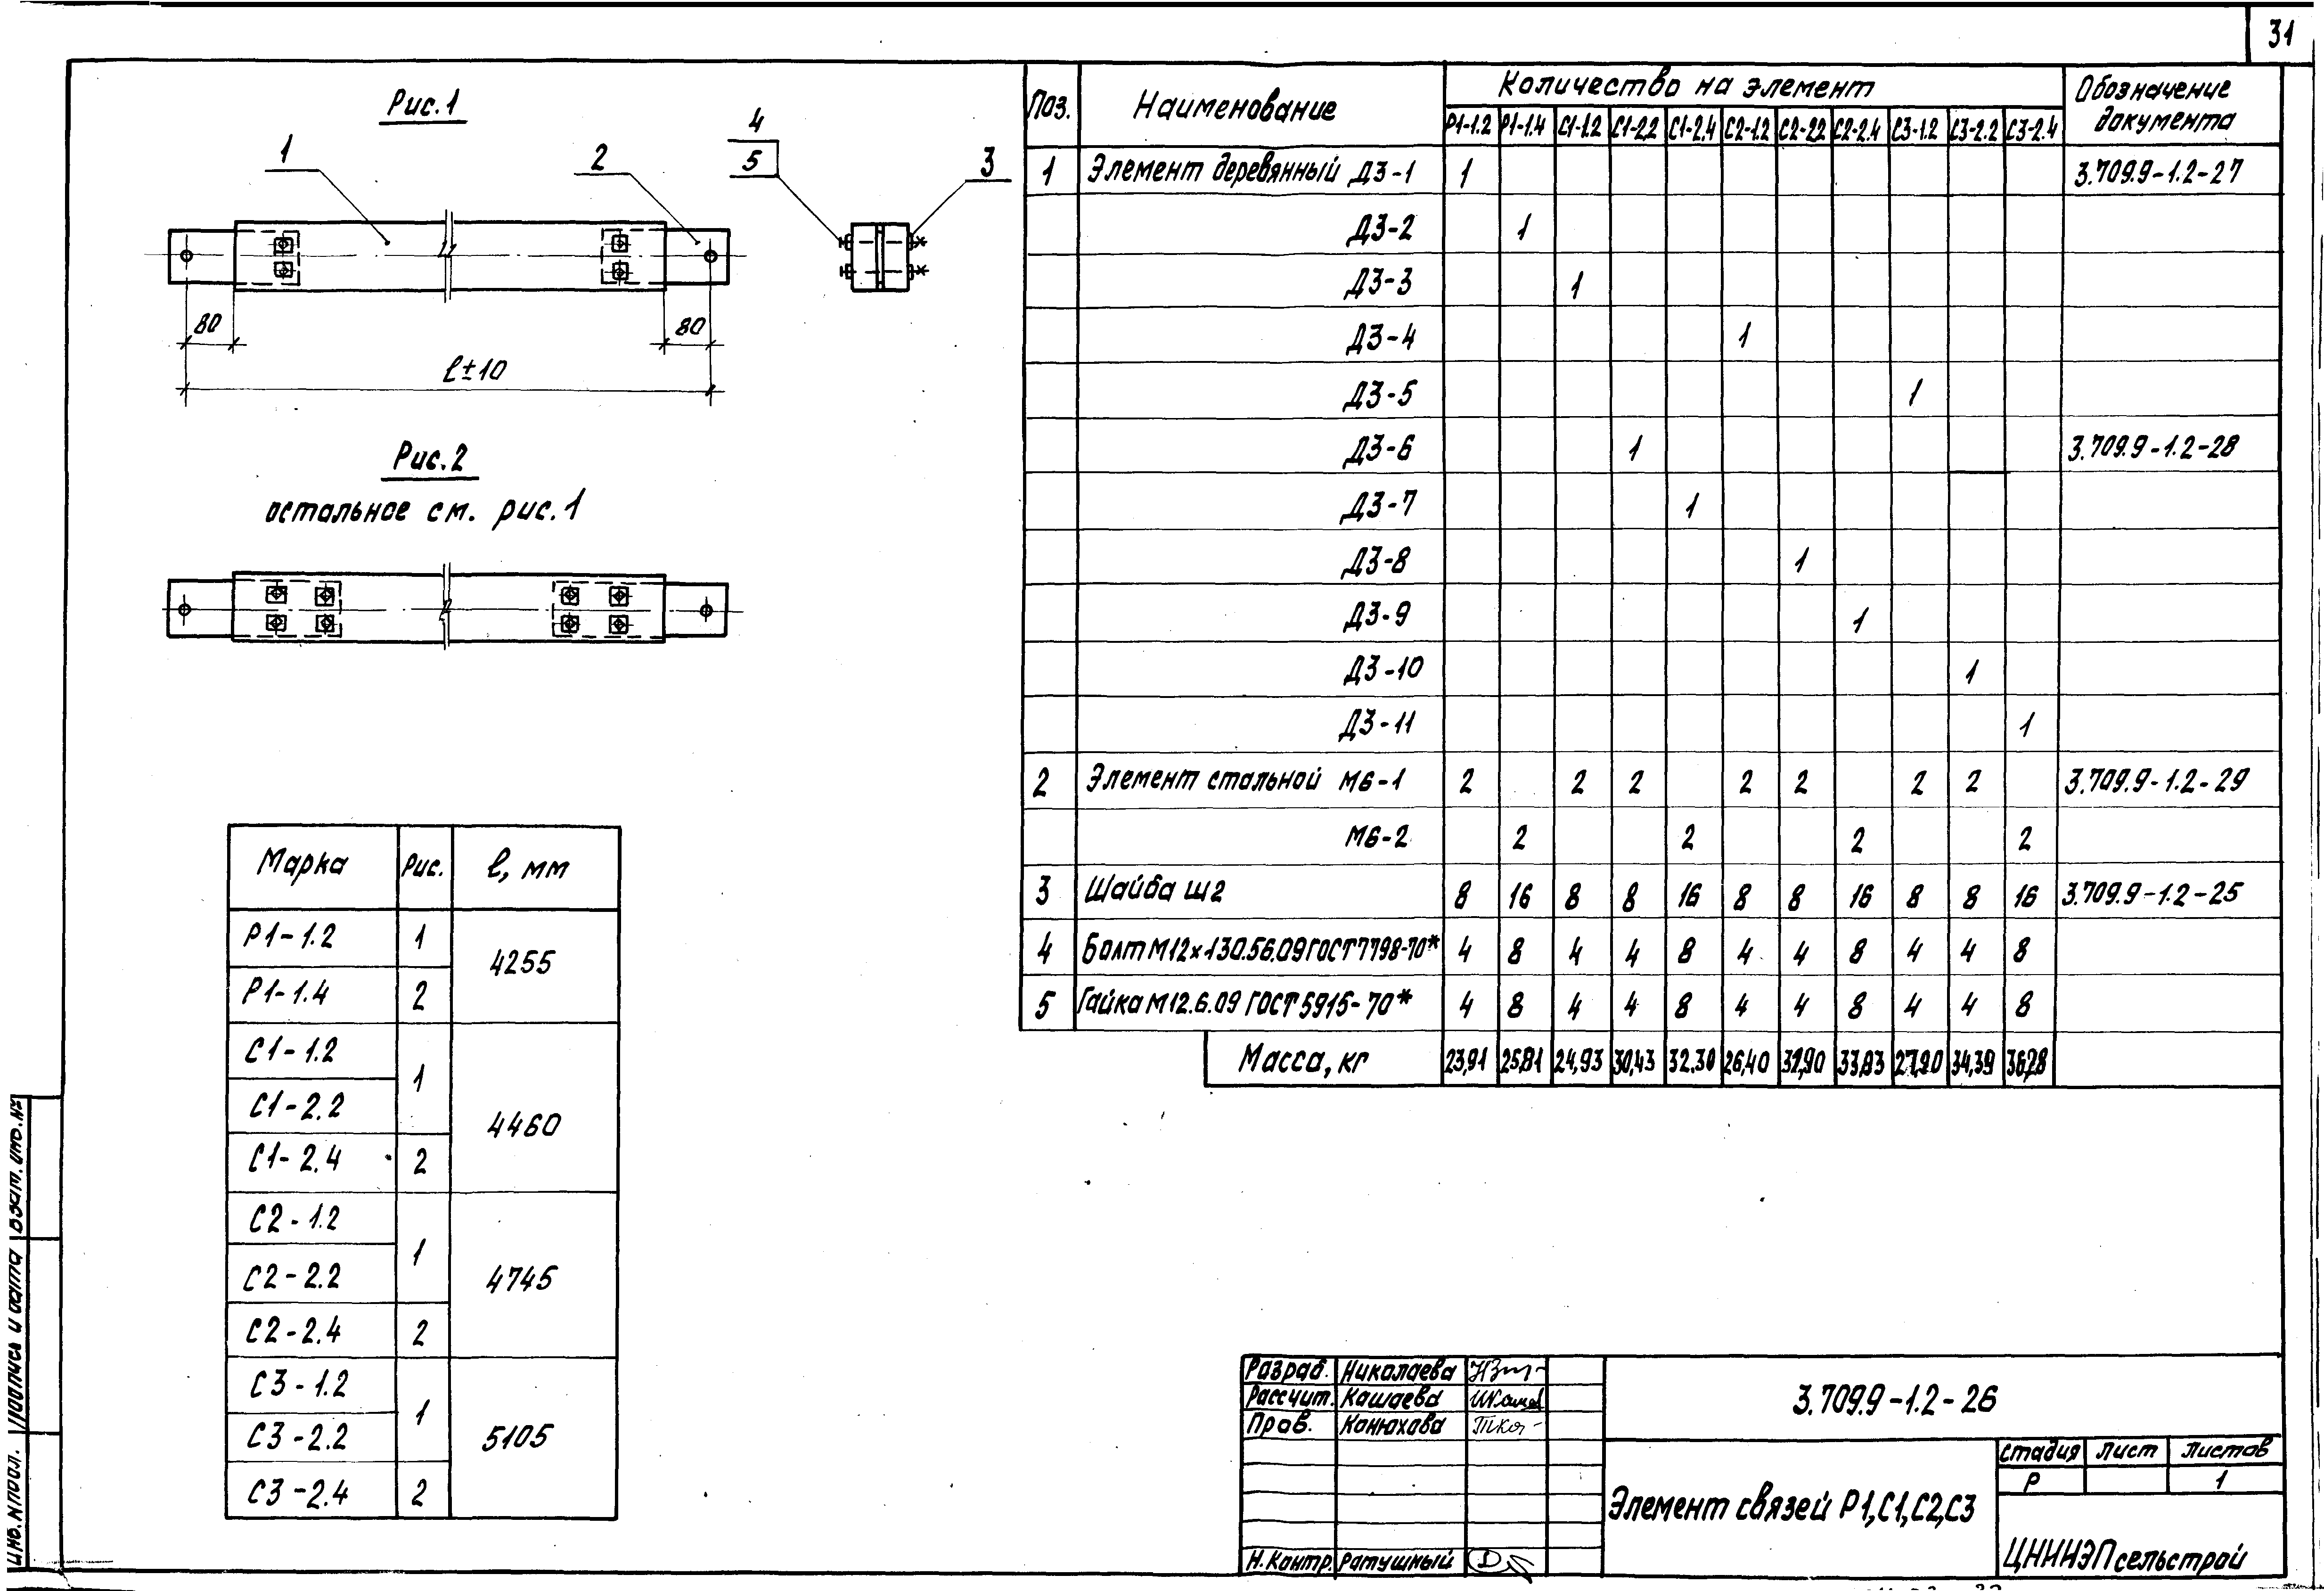 31
Рис.1
1
2
4
5
3
80
80
ℓ±10
Рис.2
остальное см. рис.1
Марка Рис. ℓ, мм
Р1-1.2 1 4255
Р1-1.4 2
С1-1.2 1 4460
С1-2.2
С1-2.4 2
С2-1.2 1 4745
С2-2.2
С2-2.4 2
С3-1.2 1 5105
С3-2.2
С3-2.4 2
Поз. Наименование Количество на элемент Обозначение документа
Р1-1.2 Р1-1.4 С1-1.2 С1-2.2 С1-2.4 С2-1.2 С2-2.2 С2-2.4 С3-1.2 С3-2.2 С3-2.4
1 Элемент деревянный Д3-1 1 3.709.9-1.2-27
Д3-2 1
Д3-3 1
Д3-4 1
Д3-5 1
Д3-6 1 3.709.9-1.2-28
Д3-7 1
Д3-8 1
Д3-9 1
Д3-10 1
Д3-11 1
2 Элемент стальной М6-1 2 2 2 2 2 2 2 3.709.9-1.2-29
М6-2 2 2 2 2
3 Шайба ш2 8 16 8 8 16 8 8 16 8 8 16 3.709.9-1.2-25
4 Болт М12×130.56.09 ГОСТ 7798-70* 4 8 4 4 8 4 4 8 4 4 8
5 Гайка М12.6.09 ГОСТ 5915-70* 4 8 4 4 8 4 4 8 4 4 8
Масса, кг 23,91 25,81 24,93 30,43 32.30 26,40 31,90 33,83 27,90 34,39 36,28
Разраб. Николаева
Рассчит. Кашаева
Пров. Конюхова
Н.Контр. Ратушный
3.709.9-1.2-26
Элемент связей Р1,С1,С2,С3
стадия лист листов
Р 1
ЦНИИЭПсельстрой
Инв.№ подл. Подпись и дата Взам.инв.№